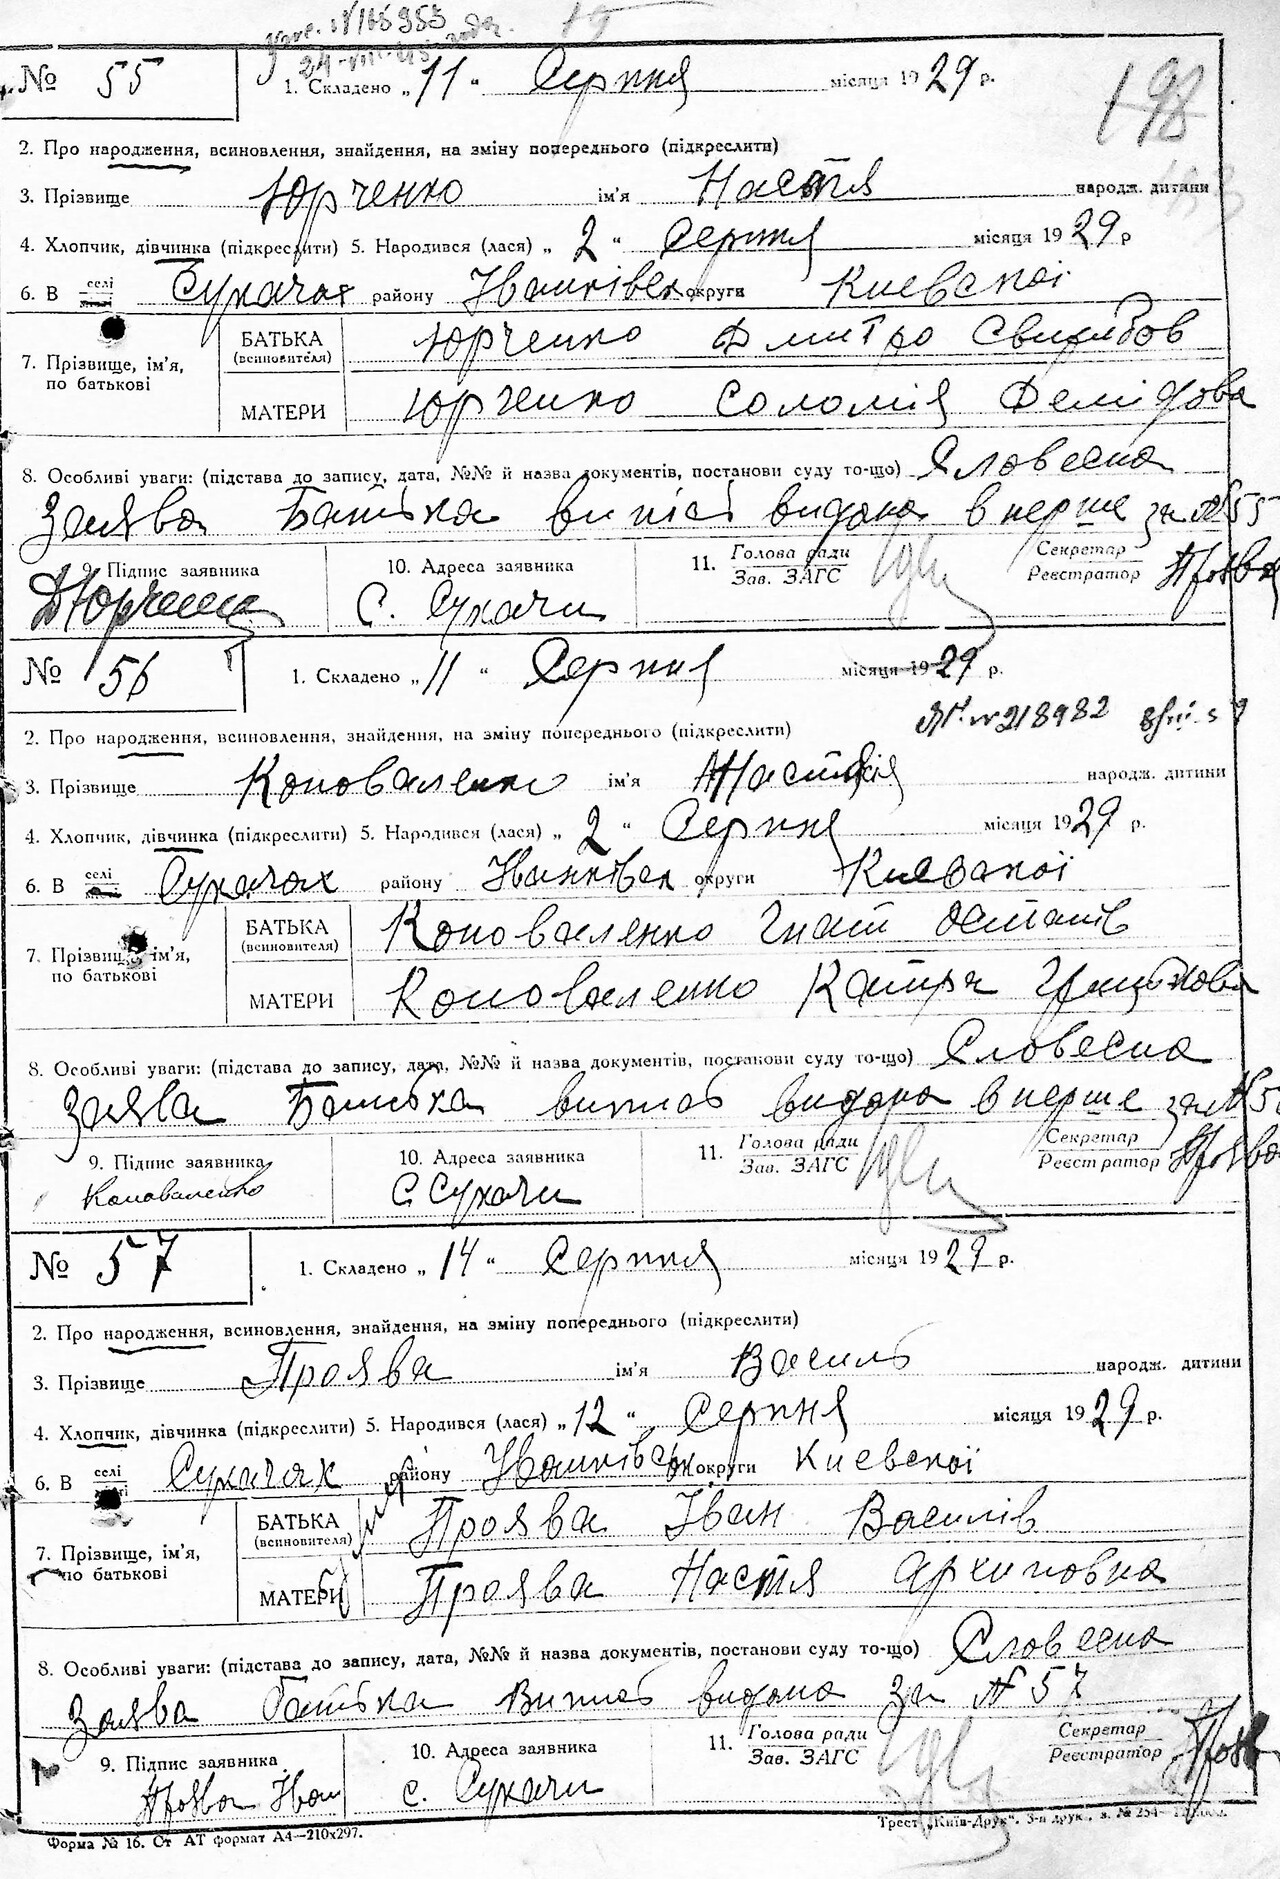 № 55
1. Складено „11“ Серпня місяця 1929 р.
198
2. Про народження, всиновлення, знайдення, на зміну попереднього (підкреслити)
3. Прізвище Юрченко ім'я Настя народж. дитини
4. Хлопчик, дівчинка (підкреслити) 5. Народився (лася) „2“ Серпня місяця 1929 р
6. В селі Сукачах району Іванківськ округи Киевскої
7. Прізвище, ім'я, по батькові
БАТЬКА (всиновителя) Юрченко Дмитро
МАТЕРИ Юрченко Соломія Демідова
8. Особливі уваги: (підстава до запису, дата, №№ й назва документів, постанови суду то-що) Словесна
Заява Батька випісь видана вперше за №55
9. Підпис заявника 10. Адреса заявника 11. Голова ради Зав. ЗАГС Секретар Реєстратор Проява
ДЮрченко с. Сукачи
№ 56
1. Складено „11“ Серпня місяця 1929 р.
№ 218982
2. Про народження, всиновлення, знайдення, на зміну попереднього (підкреслити)
3. Прізвище Коноваленко ім'я народж. дитини
4. Хлопчик, дівчинка (підкреслити) 5. Народився (лася) „2“ Серпня місяця 1929 р.
6. В селі Сукачах району Іванківськ округи Киевскої
7. Прізвище, ім'я, по батькові
БАТЬКА (всиновителя) Коноваленко Гнат Остапів
МАТЕРИ Коноваленко Катря Грицькова
8. Особливі уваги: (підстава до запису, дата, №№ й назва документів, постанови суду то-що) Словесна
Заява Батька випись видана вперше за №56
9. Підпис заявника 10. Адреса заявника 11. Голова ради Зав. ЗАГС Секретар Реєстратор Проява
Коноваленко с. Сукачи
№ 57
1. Складено „14“ Серпня місяця 1929 р.
2. Про народження, всиновлення, знайдення, на зміну попереднього (підкреслити)
3. Прізвище Проява ім'я Василь народж. дитини
4. Хлопчик, дівчинка (підкреслити) 5. Народився (лася) „12“ Серпня місяця 1929 р.
6. В селі Сукачах району Іванківськ округи Киевскої
7. Прізвище, ім'я, по батькові
БАТЬКА (всиновителя) Проява Іван Василів
МАТЕРИ Проява Настя Архиповна
8. Особливі уваги: (підстава до запису, дата, №№ й назва документів, постанови суду то-що) Словесна
Заява батька Випись видана за № 57
9. Підпис заявника 10. Адреса заявника 11. Голова ради Зав. ЗАГС Секретар Реєстратор Проява
Проява Іван с. Сукачи
Форма № 16. Ст АТ формат А4—210х297.
Трест „Київ-Друк“. 3-я друк., з. № 254